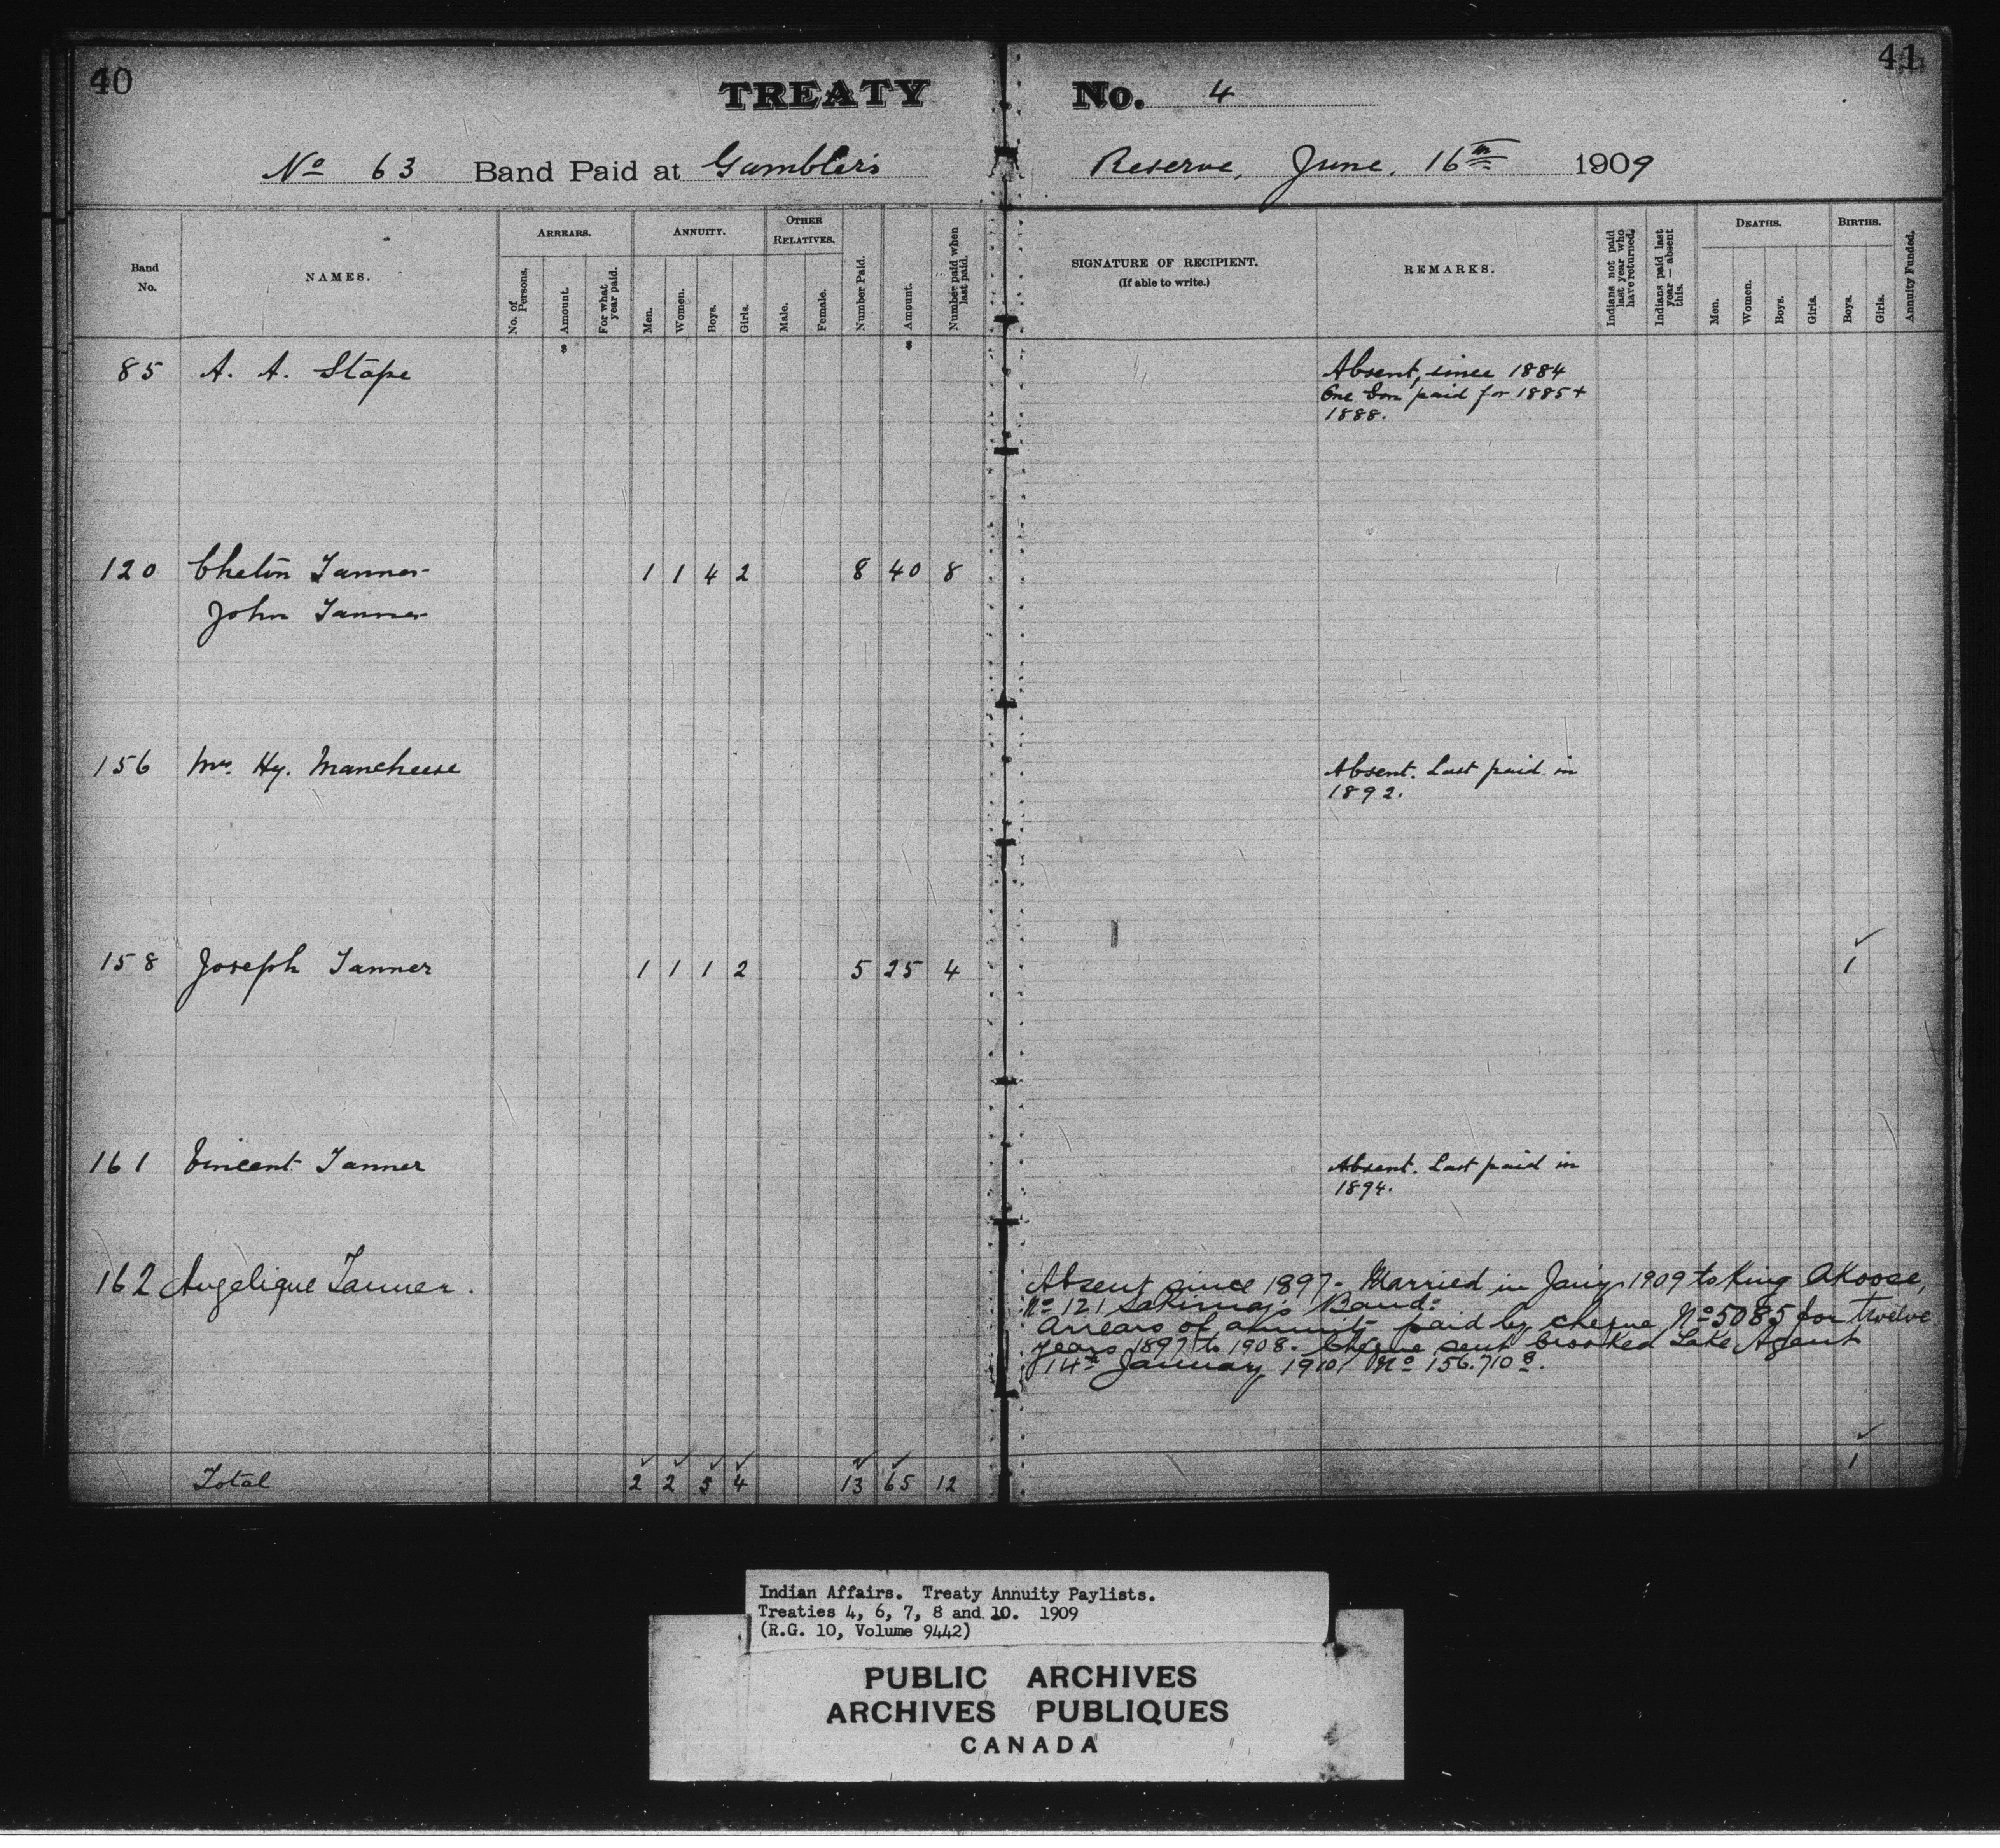 40
41
TREATY No. 4
No 63 Band Paid at Gambler's Reserve, June, 16th 1909
Band No.
NAMES.
ARREARS.
No. of Persons.
Amount.
For what year paid.
ANNUITY.
Men.
Women.
Boys.
Girls.
OTHER RELATIVES.
Male.
Female.
Number Paid.
Amount.
Number paid when last paid.
SIGNATURE OF RECIPIENT.
(If able to write.)
REMARKS.
Indians not paid last year who have returned.
Indians paid last year – absent this.
DEATHS.
Men.
Women.
Boys.
Girls.
BIRTHS.
Boys.
Girls.
Annuity Funded.
$ $
85 A. A. Stape Absent, since 1884
One Son paid for 1885 +
1888.
120 Tanner 1 1 4 2 8 40 8
John Tanner
156 Mrs. Hy. Absent. Last paid in
1892.
158 Joseph Tanner 1 1 1 2 5 25 4 1
161 Vincent Tanner Absent. Last paid in
1894.
162 Angelique Tanner. Absent since 1897. Married in Jany 1909 to King Akoose,
No 121 Sakimay's Band.
Arrears of annuity paid by cheque No 5085 for twelve
years 1897 to 1908. Cheque sent Crooked Lake Agent
14th January, 1910, No 156.710
Total 2 2 5 4 13 65 12 1
Indian Affairs. Treaty Annuity Paylists.
Treaties 4, 6, 7, 8 and 10. 1909
(R.G. 10, Volume 9442)
PUBLIC ARCHIVES
ARCHIVES PUBLIQUES
CANADA